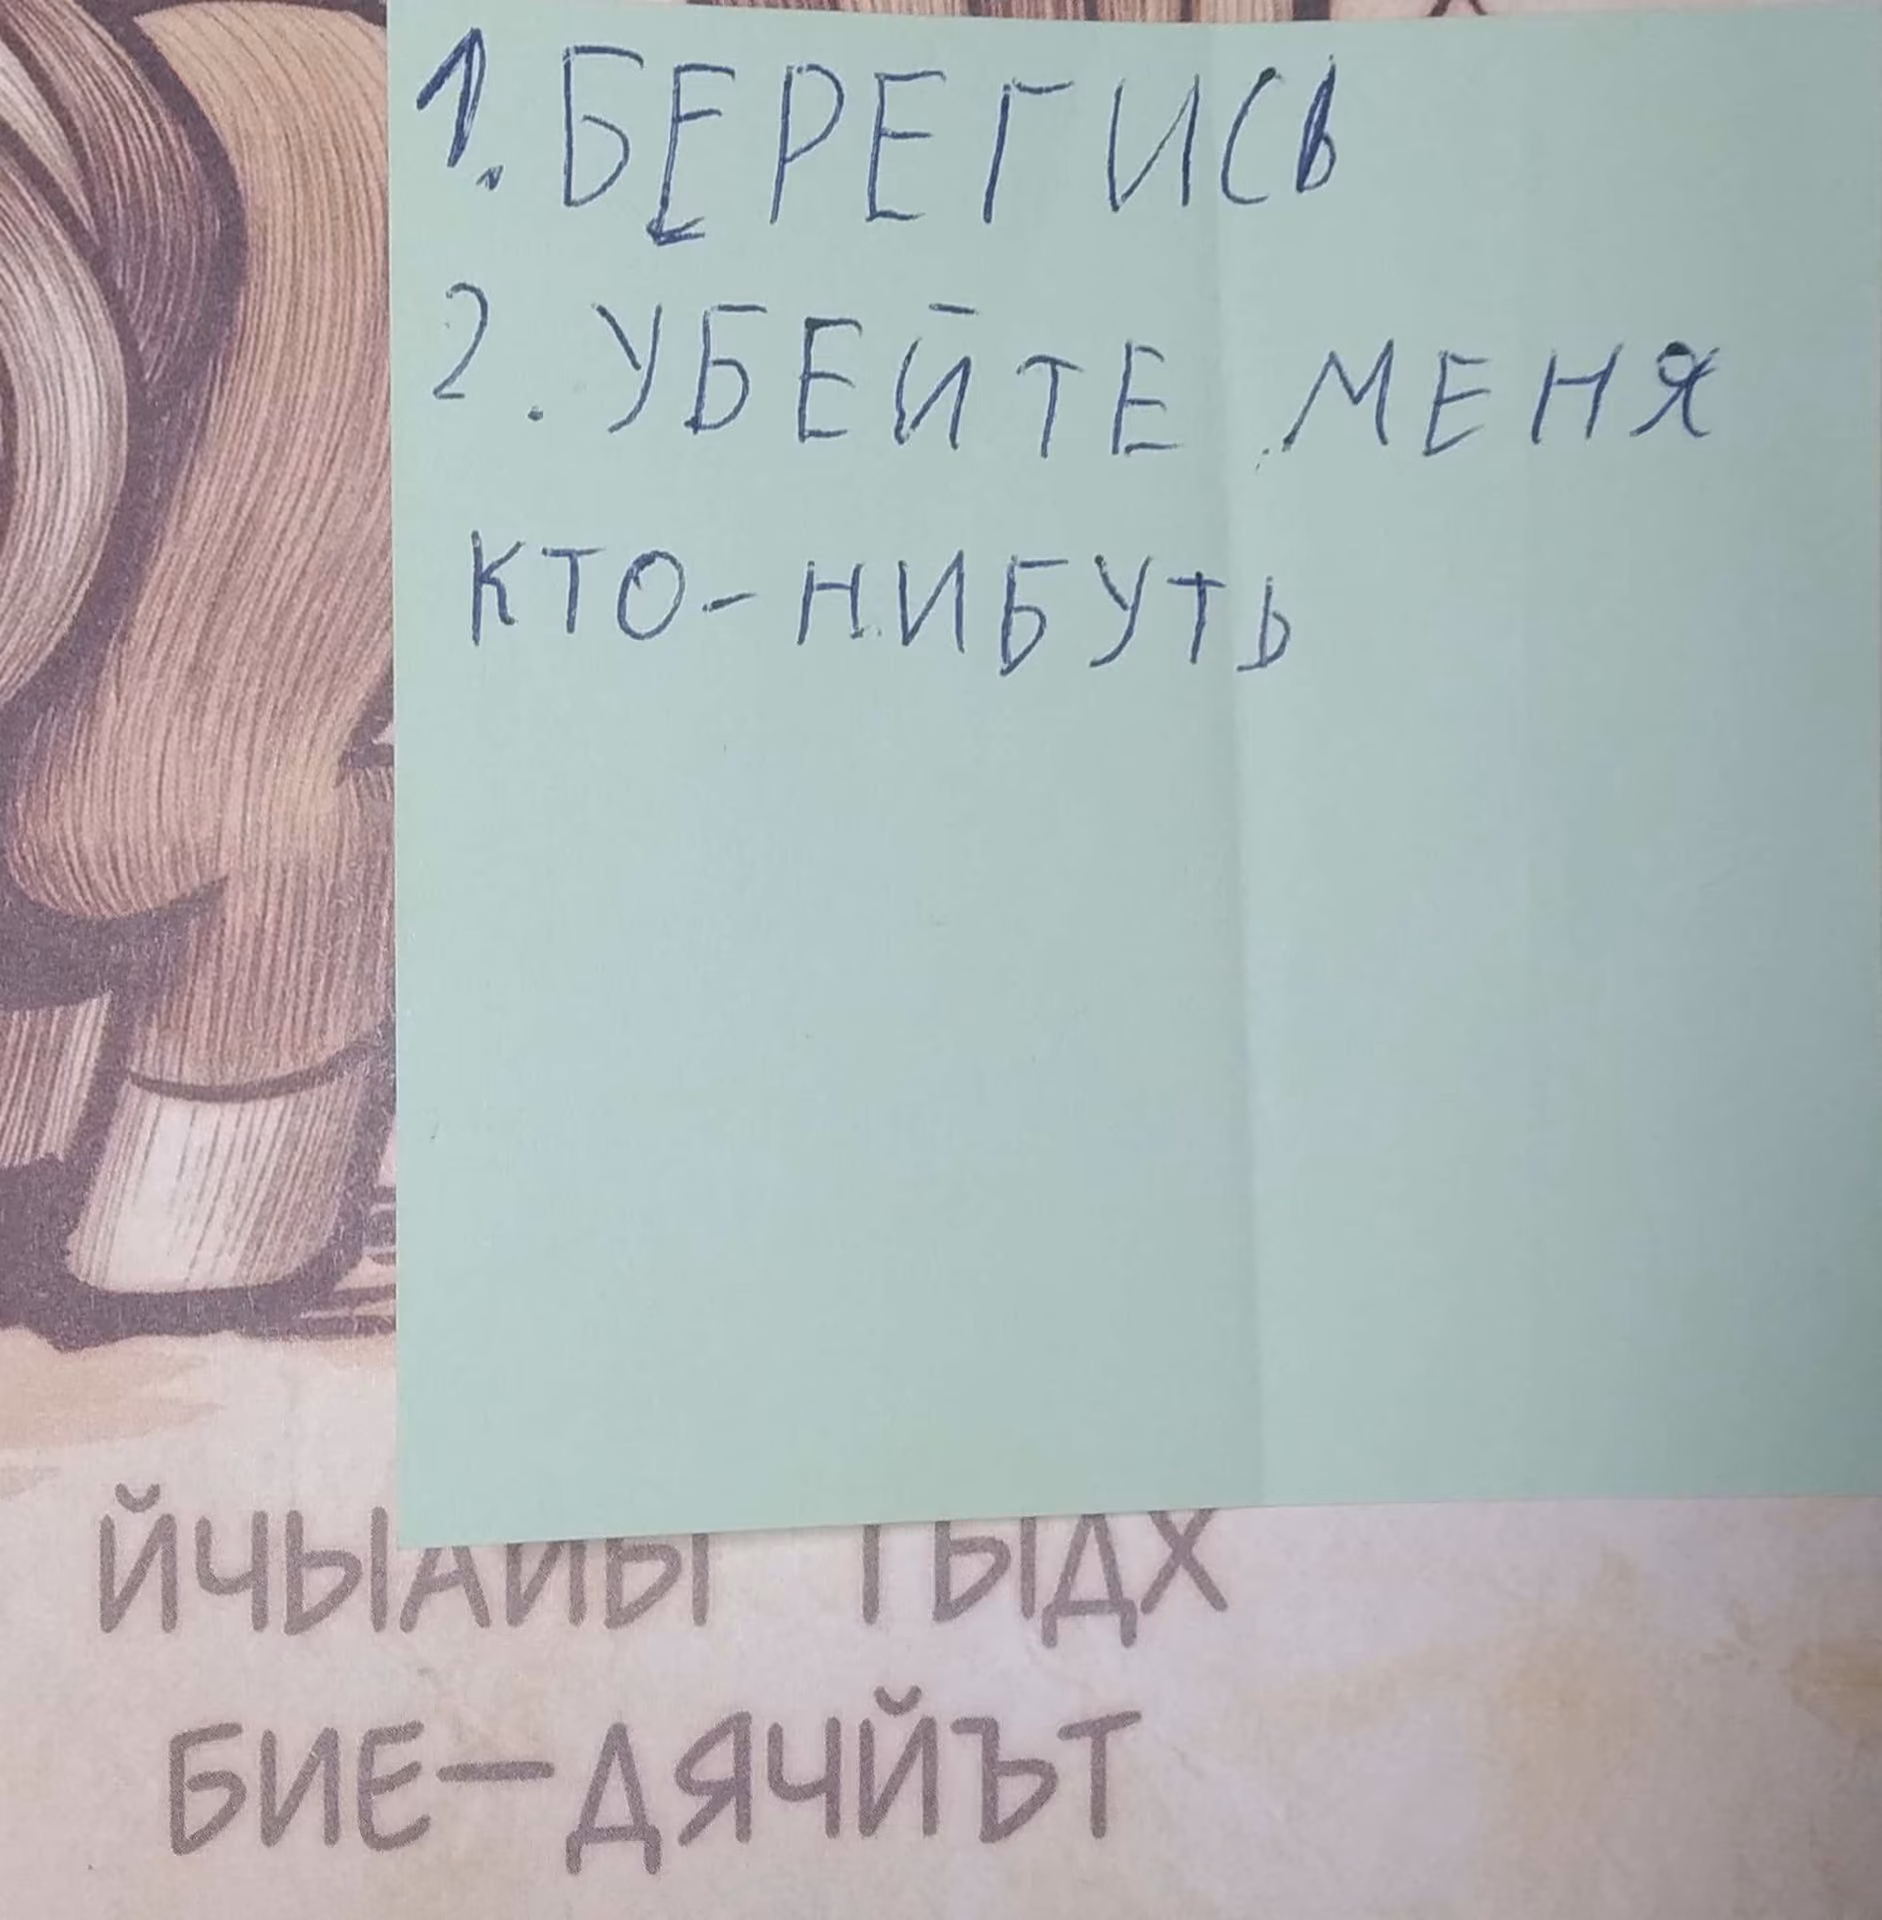 1. БЕРЕГИСЬ
2. УБЕЙТЕ МЕНЯ
КТО-НИБУТЬ
ЙЧЫАЙЫ ТЫДХ
БИЕ-ДЯЧЙЪТ